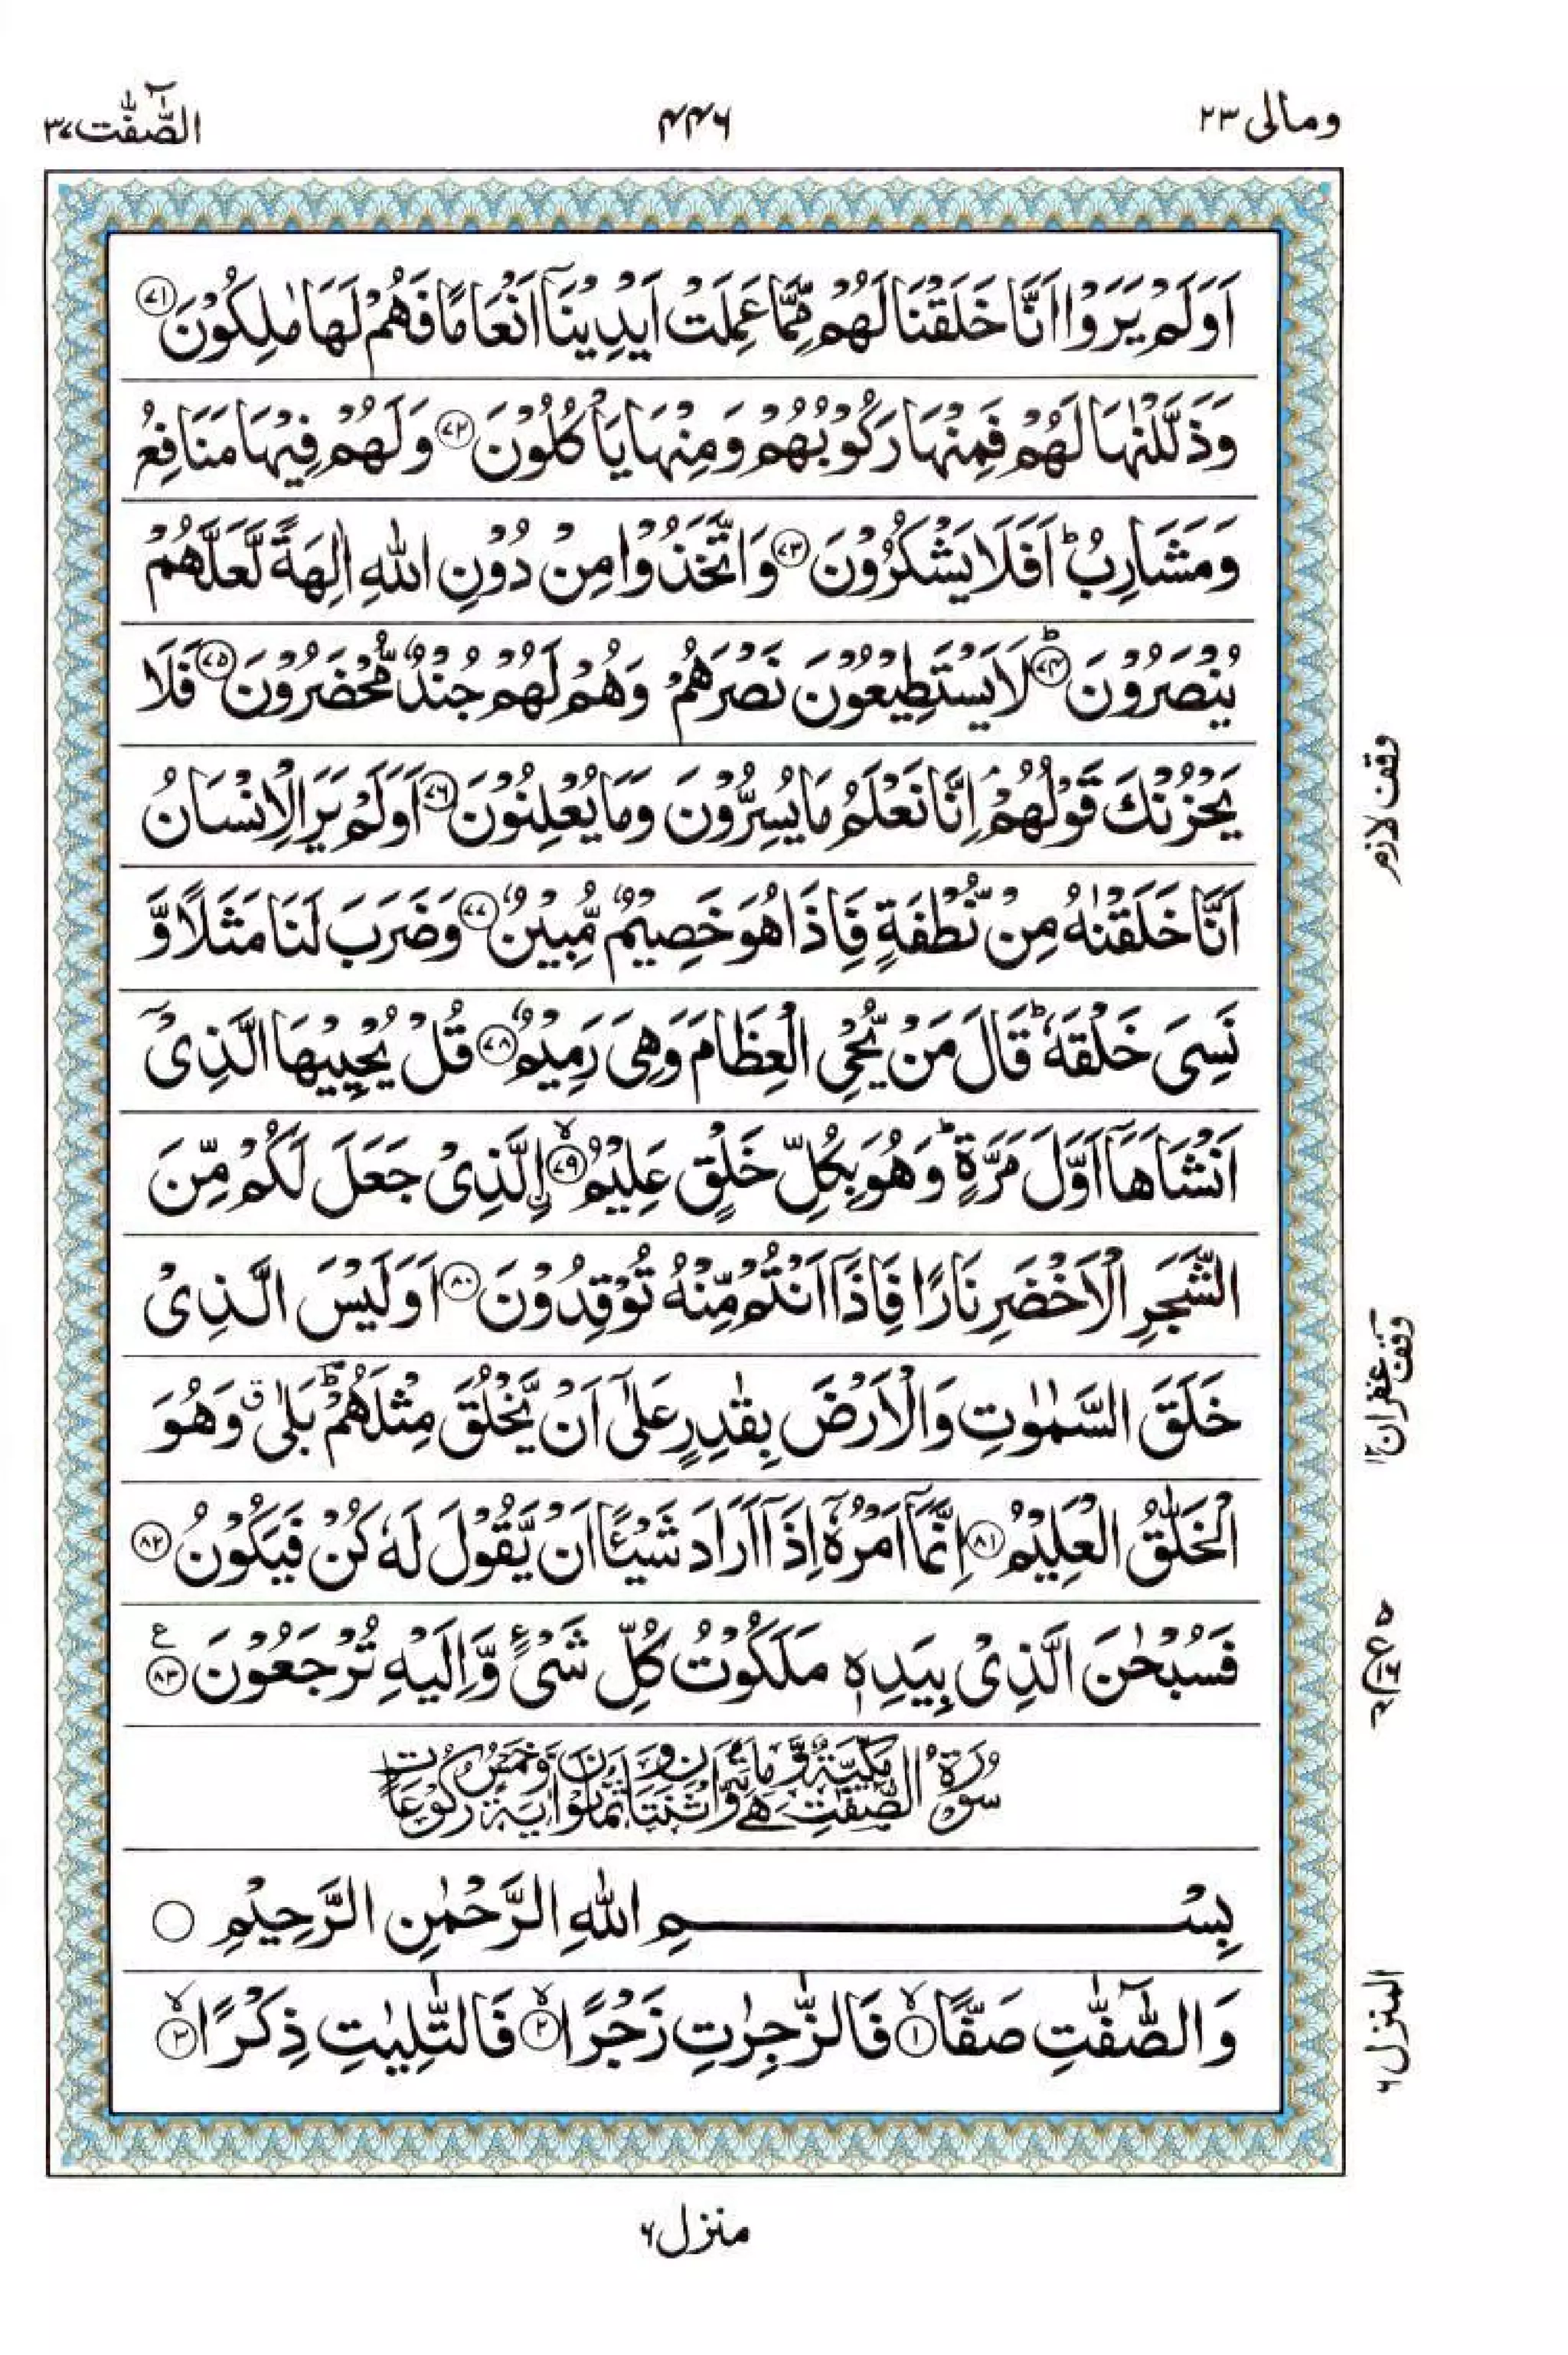 ومالی ۲۳
۴۴۶
الصّٰٓفّٰت ۳۷
اَوَلَمْ يَرَوْا اَنَّا خَلَقْنَا لَهُمْ مِّمَّا عَمِلَتْ اَيْدِيْنَاۤ اَنْعَامًا فَهُمْ لَهَا مٰلِكُوْنَ ﴿۷۱﴾
وَذَلَّلْنٰهَا لَهُمْ فَمِنْهَا رَكُوْبُهُمْ وَمِنْهَا يَاْكُلُوْنَ ﴿۷۲﴾ وَلَهُمْ فِيْهَا مَنَافِعُ
وَمَشَارِبُ ؕ اَفَلَا يَشْكُرُوْنَ ﴿۷۳﴾ وَاتَّخَذُوْا مِنْ دُوْنِ اللّٰهِ اٰلِهَةً لَّعَلَّهُمْ
يُنْصَرُوْنَ ؕ﴿۷۴﴾ لَا يَسْتَطِيْعُوْنَ نَصْرَهُمْ وَهُمْ لَهُمْ جُنْدٌ مُّحْضَرُوْنَ ﴿۷۵﴾ فَلَا
يَحْزُنْكَ قَوْلُهُمْ ۘ اِنَّا نَعْلَمُ مَا يُسِرُّوْنَ وَمَا يُعْلِنُوْنَ ﴿۷۶﴾ اَوَلَمْ يَرَ الْاِنْسَانُ
وقف لازم
اَنَّا خَلَقْنٰهُ مِنْ نُّطْفَةٍ فَاِذَا هُوَ خَصِيْمٌ مُّبِيْنٌ ﴿۷۷﴾ وَضَرَبَ لَنَا مَثَلًا وَّ
نَسِيَ خَلْقَهٗ ؕ قَالَ مَنْ يُّحْيِ الْعِظَامَ وَهِيَ رَمِيْمٌ ﴿۷۸﴾ قُلْ يُحْيِيْهَا الَّذِيْۤ
اَنْشَاَهَاۤ اَوَّلَ مَرَّةٍ ؕ وَهُوَ بِكُلِّ خَلْقٍ عَلِيْمُ ۙ﴿۷۹﴾ ۨالَّذِيْ جَعَلَ لَكُمْ مِّنَ
الشَّجَرِ الْاَخْضَرِ نَارًا فَاِذَاۤ اَنْتُمْ مِّنْهُ تُوْقِدُوْنَ ﴿۸۰﴾ اَوَلَيْسَ الَّذِيْ
خَلَقَ السَّمٰوٰتِ وَالْاَرْضَ بِقٰدِرٍ عَلٰۤى اَنْ يَّخْلُقَ مِثْلَهُمْ ؕ بَلٰى ۗ وَهُوَ
وقف غفران ۱۲
الْخَلّٰقُ الْعَلِيْمُ ﴿۸۱﴾ اِنَّمَاۤ اَمْرُهٗۤ اِذَاۤ اَرَادَ شَيْـًٔا اَنْ يَّقُوْلَ لَهٗ كُنْ فَيَكُوْنُ ﴿۸۲﴾
فَسُبْحٰنَ الَّذِيْ بِيَدِهٖ مَلَكُوْتُ كُلِّ شَيْءٍ وَّاِلَيْهِ تُرْجَعُوْنَ ﴿۸۳﴾ ع
سُوْرَةُ الصّٰٓفّٰتِ مَكِّيَّةٌ وَّهِيَ مِائَةٌ وَّاثْنَتَانِ وَثَمَانُوْنَ اٰيَةً وَّخَمْسُ رُكُوْعَاتٍ
بِسْمِ اللّٰهِ الرَّحْمٰنِ الرَّحِيْمِ
وَالصّٰٓفّٰتِ صَفًّا ۙ﴿۱﴾ فَالزّٰجِرٰتِ زَجْرًا ۙ﴿۲﴾ فَالتّٰلِيٰتِ ذِكْرًا ۙ﴿۳﴾
المنزل ۶
منزل ۶